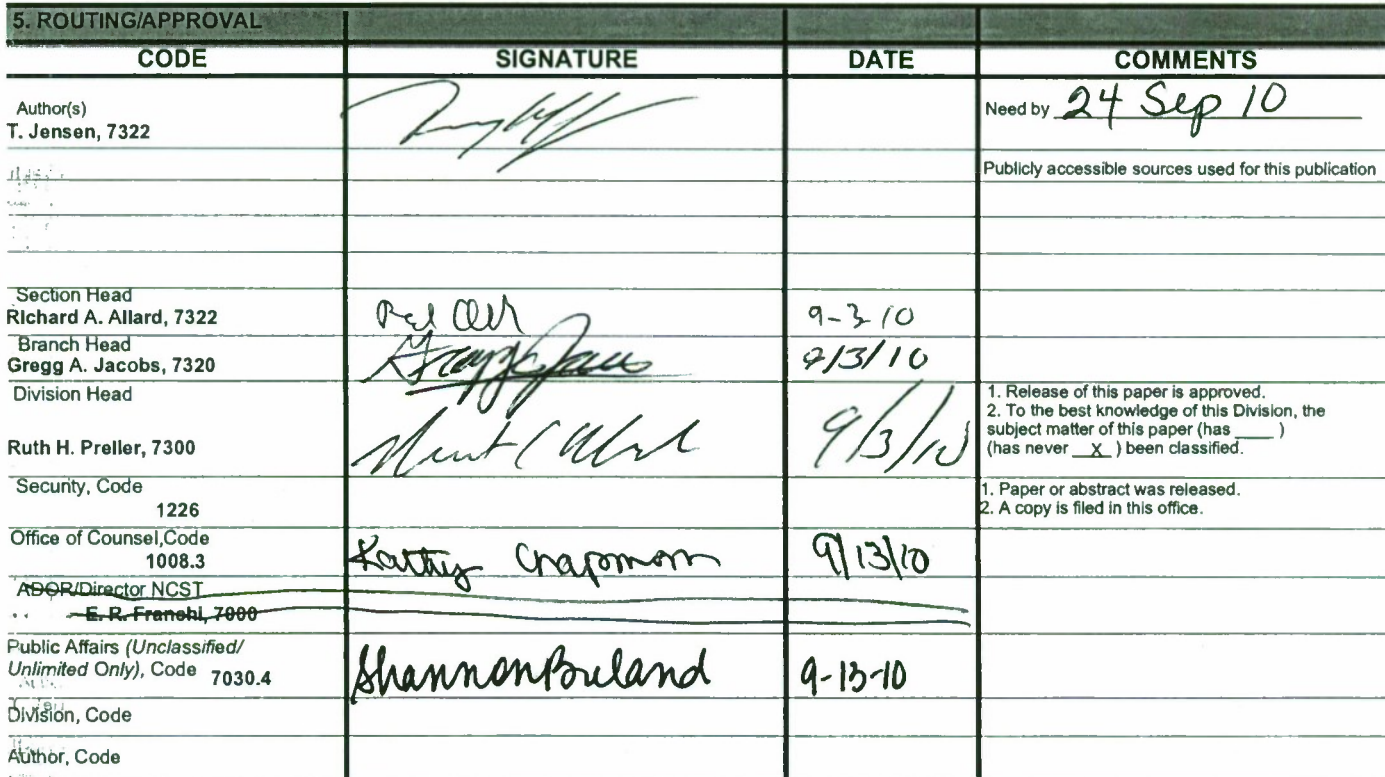 5. ROUTING/APPROVAL
CODE SIGNATURE DATE COMMENTS
Author(s)
T. Jensen, 7322
Need by 24 Sep 10
Publicly accessible sources used for this publication
Section Head
Richard A. Allard, 7322
9-3-10
Branch Head
Gregg A. Jacobs, 7320
9/3/10
Division Head
Ruth H. Preller, 7300
9/3/10
1. Release of this paper is approved.
2. To the best knowledge of this Division, the
subject matter of this paper (has ____ )
(has never __X__ ) been classified.
Security, Code
1226
1. Paper or abstract was released.
2. A copy is filed in this office.
Office of Counsel,Code
1008.3
Kathy Chapman 9/13/10
ADOR/Director NCST
E. R. Franchi, 7000
Public Affairs (Unclassified/
Unlimited Only), Code 7030.4
Shannon Breland 9-13-10
Division, Code
Author, Code